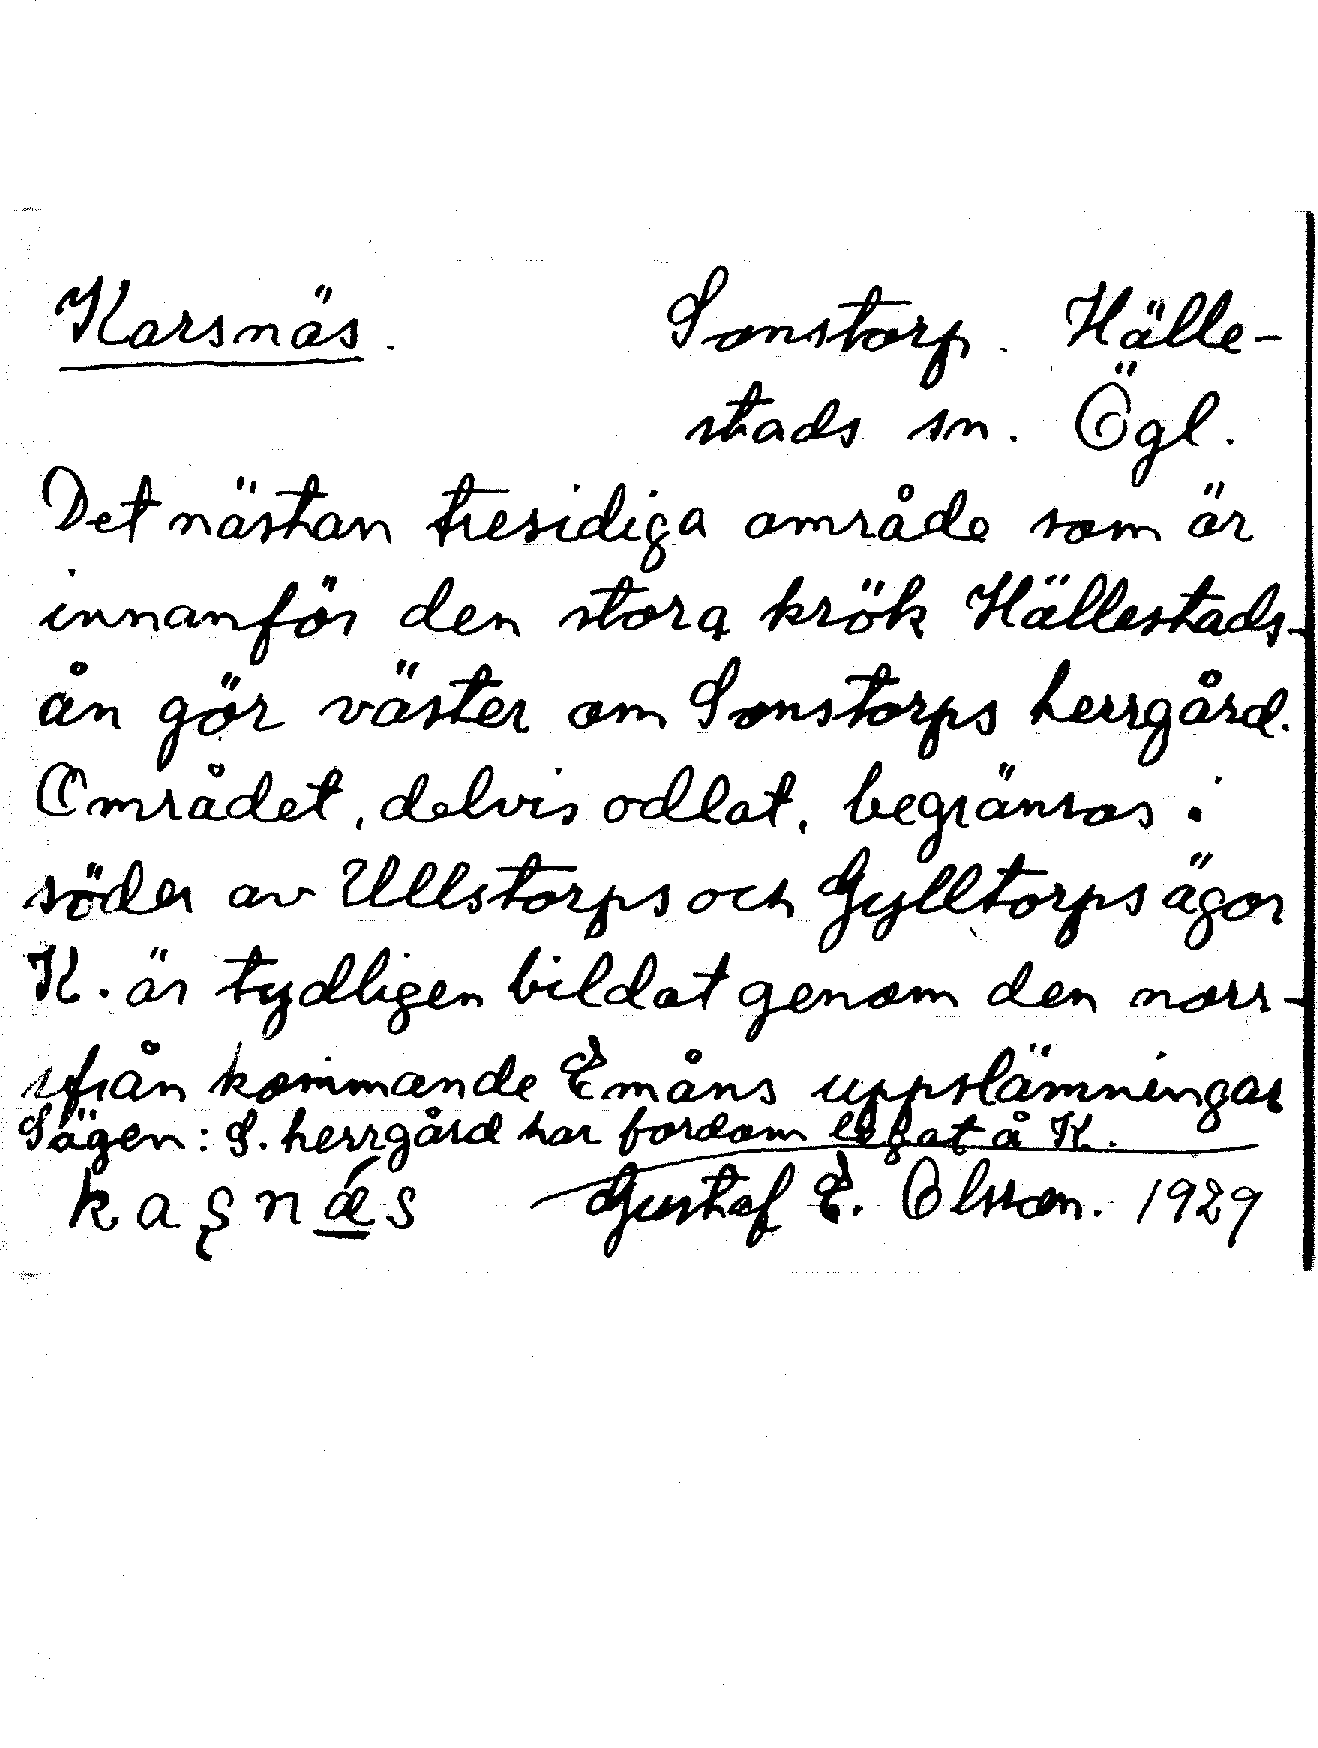 Karsnäs. Sonstorp. Hälle-
stads sn. Ögl.
Det nästan tresidiga område som är
innanför den stora krök Hällestads-
ån gör väster om Sonstorps herrgård.
Området, delvis odlat, begränsas i
söder av Ullstorps och Gylltorps ägor
K. är tydligen bildat genom den norr-
ifrån kommande Emåns uppslämningar
Sägen: S. herrgård har fordom legat å K.
kaşnǽs Gustaf E. Olsson. 1929